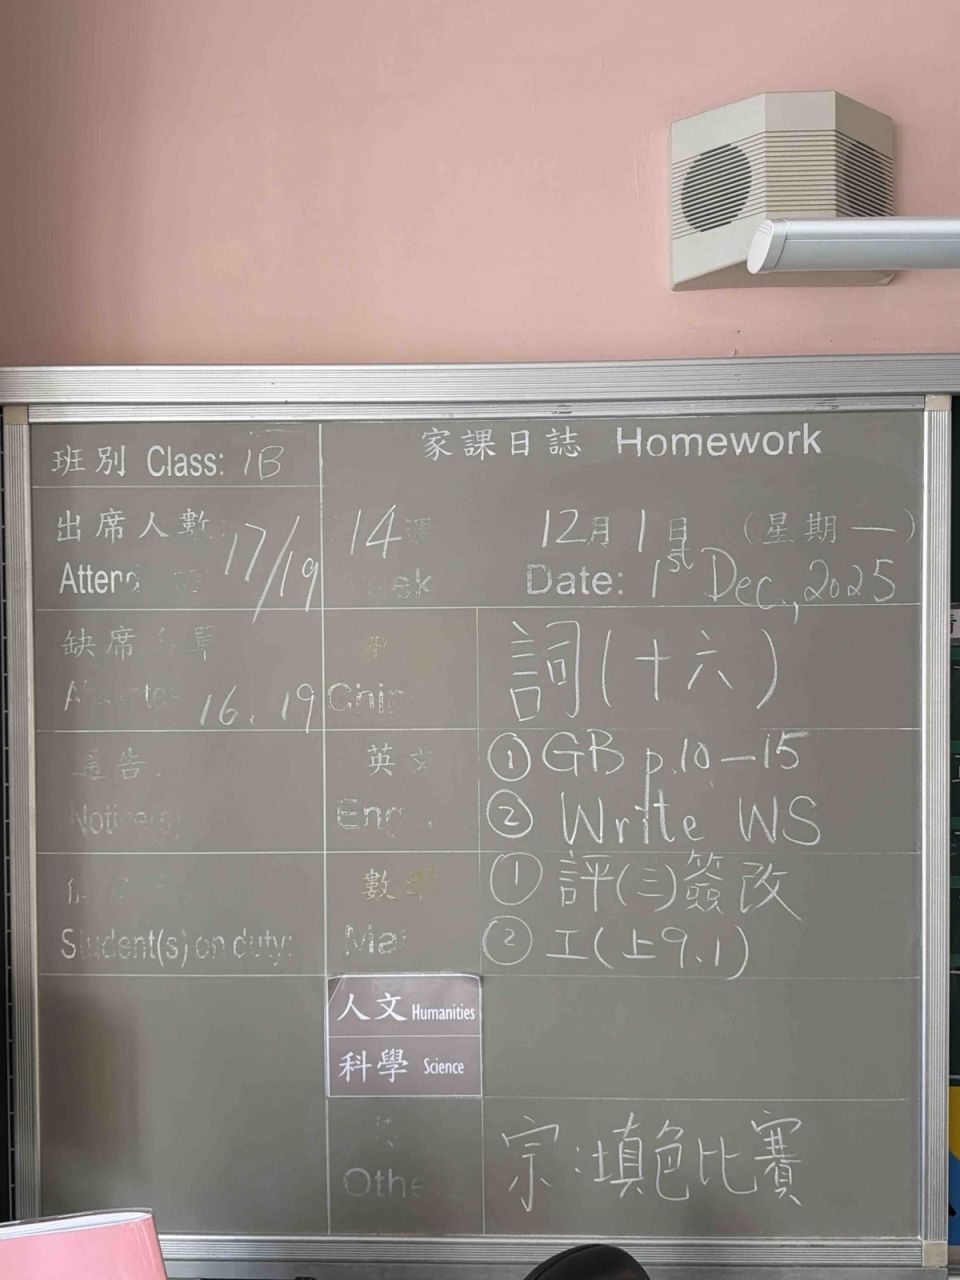 班別 Class: 1B
家課日誌 Homework
出席人數 17/19
14週
12月1日 (星期一)
Date: 1st Dec., 2025
缺席名單
16. 19
中
詞(十六)
通告
Notice(s)
英文
① GB p.10-15
② Write WS
數學
① 評(三)簽改
Student(s) on duty:
② 工(上9.1)
人文 Humanities
科學 Science
宗:填色比賽